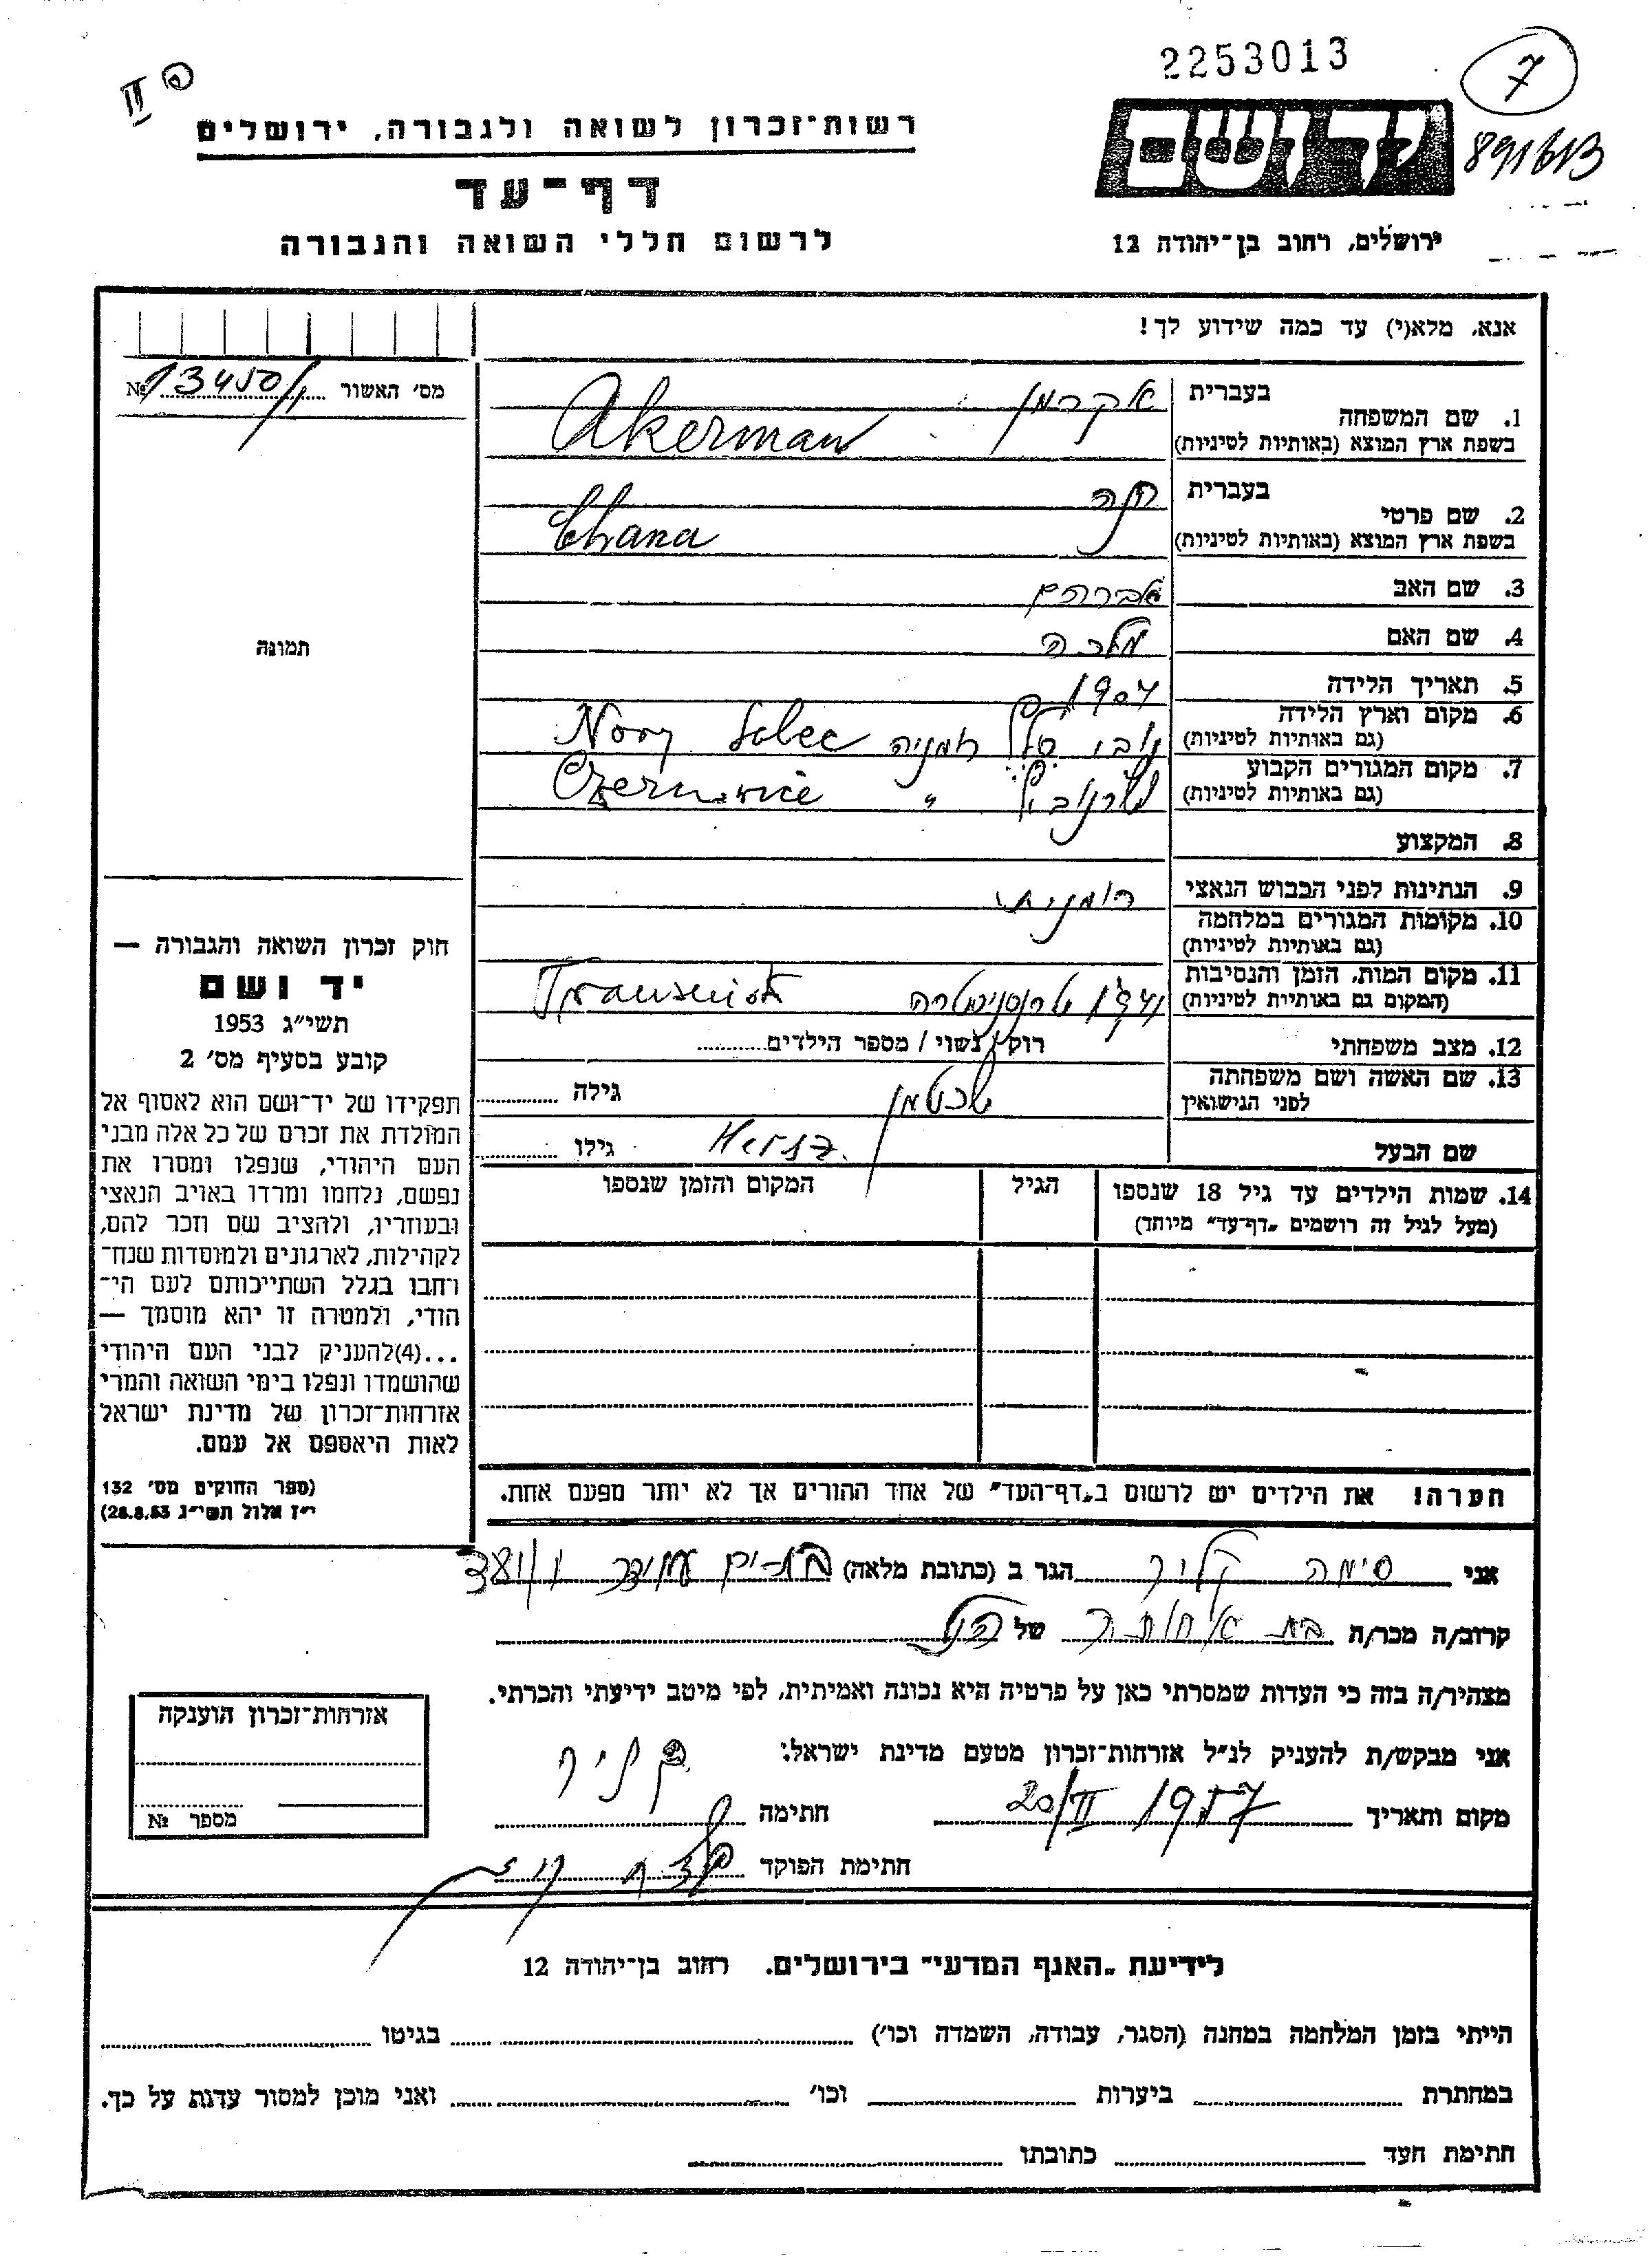 2253013
7
II
891613
רשות־זכרון לשואה ולגבורה, ירושלים
יד ושם
דף־עד
לרשום חללי השואה והגבורה
ירושלים, רחוב בן־יהודה 12
אנא, מלא(י) עד כמה שידוע לך!
מס' האשור № 13450/1
תמונה
1. שם המשפחה
בעברית אקרמן
בשפת ארץ המוצא (באותיות לטיניות) Akerman
2. שם פרטי
בעברית חנה
בשפת ארץ המוצא (באותיות לטיניות) Chana
3. שם האב אברהם
4. שם האם מלכה
5. תאריך הלידה 1904
6. מקום וארץ הלידה
(גם באותיות לטיניות) רומניה Nowy
7. מקום המגורים הקבוע
(גם באותיות לטיניות) " Czernowice
8. המקצוע
9. הנתינות לפני הכבוש הנאצי רומנית
10. מקומות המגורים במלחמה
(גם באותיות לטיניות)
11. מקום המות, הזמן והנסיבות
(המקום גם באותיות לטיניות) טרנסניסטריה
12. מצב משפחתי רווק / נשוי / מספר הילדים
13. שם האשה ושם משפחתה
לפני הנישואין גילה
שם הבעל Hersz גילו
14. שמות הילדים עד גיל 18 שנספו
(מעל לגיל זה רושמים „דף־עד" מיוחד)
הגיל
המקום והזמן שנספו
הערה! את הילדים יש לרשום ב„דף־העד" של אחד ההורים אך לא יותר מפעם אחת.
חוק זכרון השואה והגבורה —
יד ושם
תשי"ג 1953
קובע בסעיף מס' 2
תפקידו של יד־ושם הוא לאסוף אל
המולדת את זכרם של כל אלה מבני
העם היהודי, שנפלו ומסרו את
נפשם, נלחמו ומרדו באויב הנאצי
ובעוזריו, ולהציב שם וזכר להם,
לקהילות, לארגונים ולמוסדות שנח־
רחבו בגלל השתייכותם לעם הי־
הודי, ולמטרה זו יהא מוסמך —
...(4)להעניק לבני העם היהודי
שהושמדו ונפלו בימי השואה והמרי
אזרחות־זכרון של מדינת ישראל
לאות היאספם אל עמם.
(ספר החוקים מס' 132
י"ז אלול תשי"ג 28.8.53)
אני סימה קליר הגר ב (כתובת מלאה) בת־ים עמידר
קרוב/ה מכר/ה בת אחות של הנ"ל
מצהיר/ה בזה כי העדות שמסרתי כאן על פרטיה היא נכונה ואמיתית, לפי מיטב ידיעתי והכרתי.
אני מבקש/ת להעניק לנ"ל אזרחות־זכרון מטעם מדינת ישראל:
מקום ותאריך 20/II 1957 חתימה קליר
חתימת הפוקד
אזרחות־זכרון הוענקה
מספר №
לידיעת „האגף המדעי" בירושלים. רחוב בן־יהודה 12
הייתי בזמן המלחמה במחנה (הסגר, עבודה, השמדה וכו') בגיטו
במחתרת ביערות וכו' ואני מוכן למסור עדות על כך.
חתימת העד כתובתו